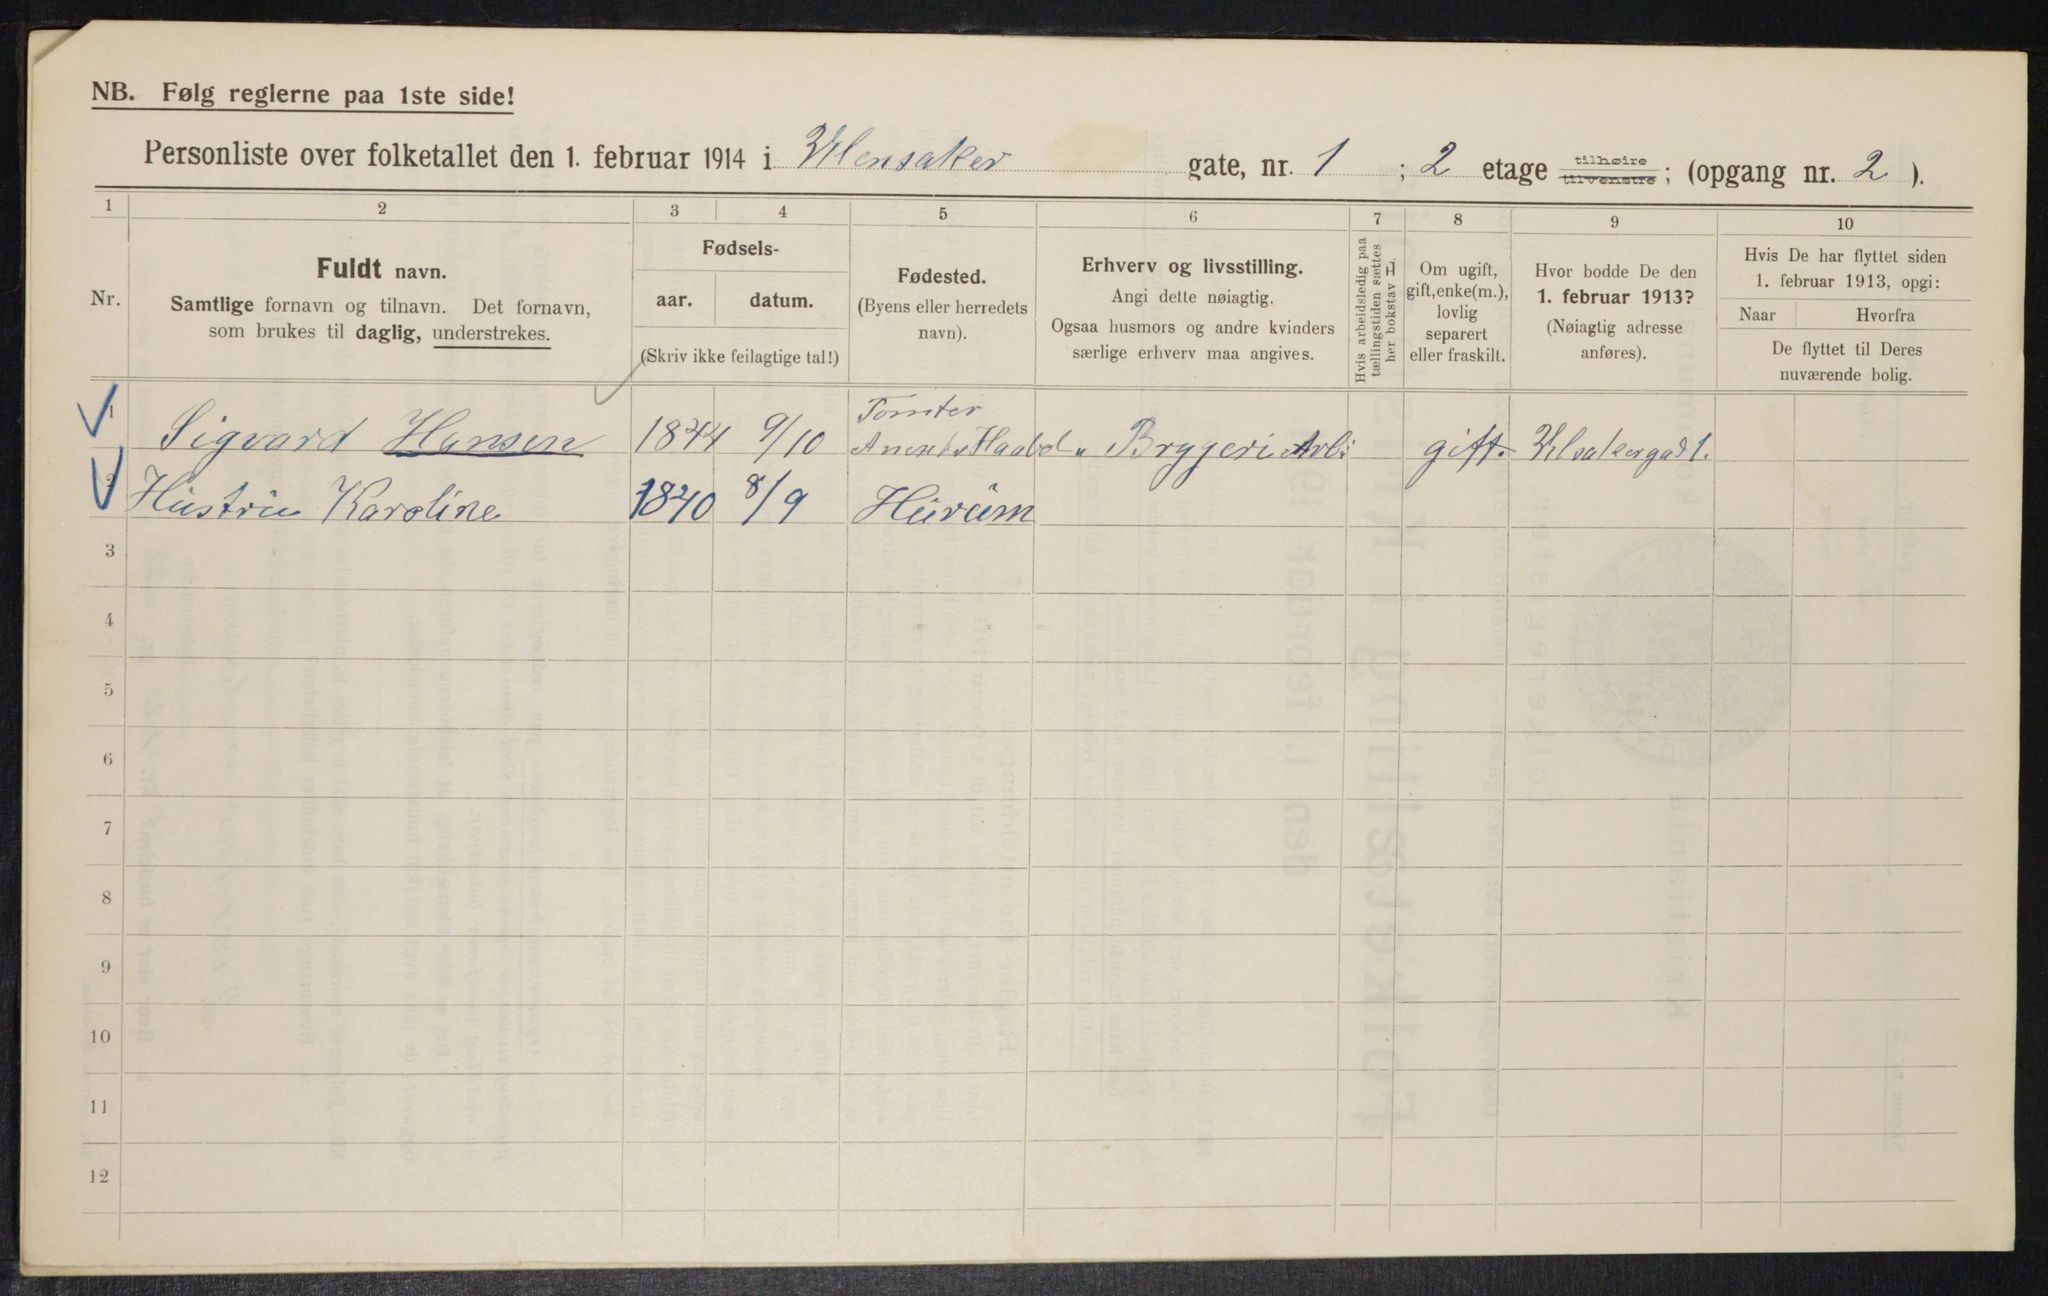 NB. Følg reglerne paa 1ste side!
Personliste over folketallet den 1. februar 1914 i Ulensaker gate, nr. 1 ; 2 etage tilhøire tilvenstre; (opgang nr. 2 ).
1 2 3 4 5 6 7 8 9 10
Nr.
Fuldt navn.
Samtlige fornavn og tilnavn. Det fornavn,
som brukes til daglig, understrekes.
Fødsels-
aar. datum.
(Skriv ikke feilagtige tal!)
Fødested.
(Byens eller herredets
navn).
Erhverv og livsstilling.
Angi dette nøiagtig.
Ogsaa husmors og andre kvinders
særlige erhverv maa angives.
Hvis arbeidsledig paa
tællingstiden sættes
her bokstav L.
Om ugift,
gift, enke(m.),
lovlig
separert
eller fraskilt.
Hvor bodde De den
1. februar 1913?
(Nøiagtig adresse
anføres).
Hvis De har flyttet siden
1. februar 1913, opgi:
Naar Hvorfra
De flyttet til Deres
nuværende bolig.
Tomter
1 Sigvard Hansen 1844 9/10 Bryggeri Arb: gift.
2 Hustru Karoline 1840 8/9 Hurum
3
4
5
6
7
8
9
10
11
12